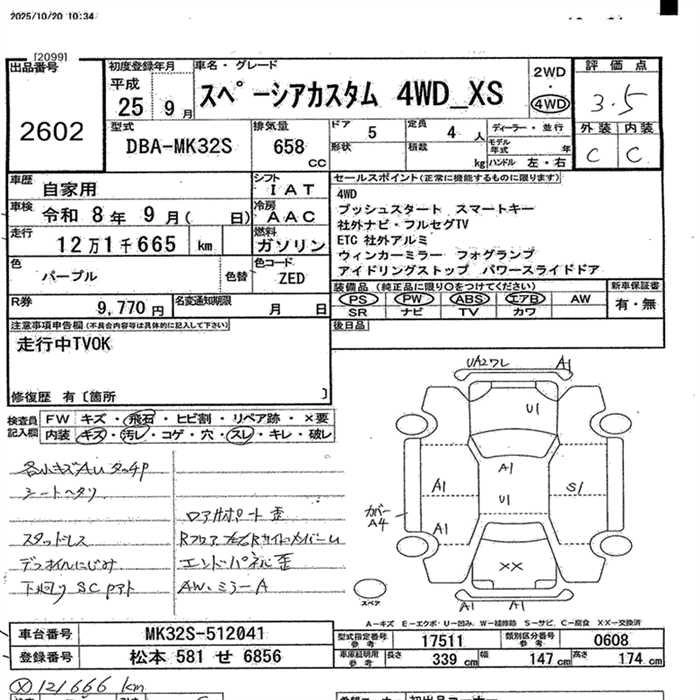 2025/10/20 10:34
[2099]
出品番号
2602
初度登録年月
平成
25 9月
車名・グレード
スペーシアカスタム 4WD_XS
2WD
・
4WD
評価点
3.5
外装 内装
C C
型式
DBA-MK32S
排気量
658
CC
ドア
5
定員
4 人
形状
積載
kg
ディーラー・並行
モデル年式
年
ハンドル 左・右
車歴
自家用
車検
令和 8年 9月( 日)
走行
12万1千665 km
色
パープル
色替
シフト
IAT
冷房
AAC
燃料
ガソリン
色コード
ZED
R券
9,770 円
名変通知期限
月 日
セールスポイント(正常に機能するものに限ります)
4WD
プッシュスタート スマートキー
社外ナビ・フルセグTV
ETC 社外アルミ
ウィンカーミラー フォグランプ
アイドリングストップ パワースライドドア
装備品 (純正品に限り○をつけてください)
PS PW ABS エアB AW
SR ナビ TV カワ
新車保証書
有・無
後日品
注意事項申告欄(不具合内容等は具体的に記入して下さい)
走行中TVOK
修復歴 有〔箇所 〕
検査員
記入欄
FW キズ・飛石・ヒビ割・リペア跡・×要
内装 キズ・汚レ・コゲ・穴・スレ・キレ・破レ
各小キズAUタッチP
シートヘタリ
スタッドレス
デフオイルにじみ
下廻りSCPアト
ロアサポート歪
RフロアR右サイドメンバーU
エンドパネル歪
AW.ミラーA
UA2ワレ
A1
U1
A1
U1
A1
A1
S1
カバー
A4
××
A1
A1
スペア
A-キズ E-エクボ・U-凹み、W-補修跡 S-サビ、C-腐食 XX-交換済
車台番号
MK32S-512041
登録番号
松本 581 せ 6856
型式指定番号
参考
17511
類別区分番号
参考
0608
車庫証明用
参考
長さ
339 cm
幅
147 cm
高さ
174 cm
Ⓧ121666 km